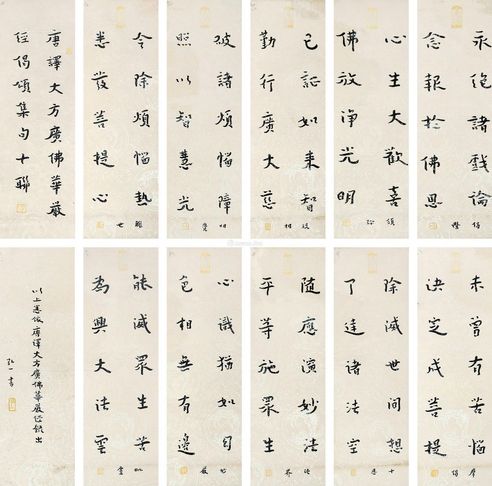 永絕諸戲論
念報於佛恩
心生大歡喜
佛放淨光明
已証如來智
勤行廣大慈
破諸煩惱障
照以智慧光
令除煩惱熱
悉發菩提心
唐譯大方廣佛華嚴
經偈頌集句十聯
未曾有苦惱
決定成菩提
除滅世間想
了達諸法空
隨應演妙法
平等施眾生
心識猶如幻
色相無有邊
能滅眾生苦
為興大法雲
以上悉依唐譯大方廣佛華嚴經錄出
弘一書